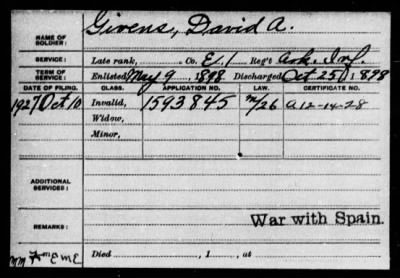 Givens, David A.
NAME OF SOLDIER:
SERVICE: Late rank, Co. E, 1 Reg't Ark. Inf.
TERM OF SERVICE: Enlisted May 9, 1898 Discharged Oct 25, 1898
DATE OF FILING. CLASS. APPLICATION NO. LAW. CERTIFICATE NO.
1927 Oct 10 Invalid, 1593845 A 12-14-28
Widow,
Minor,
ADDITIONAL SERVICES:
REMARKS: War with Spain.
Died , 1 , at